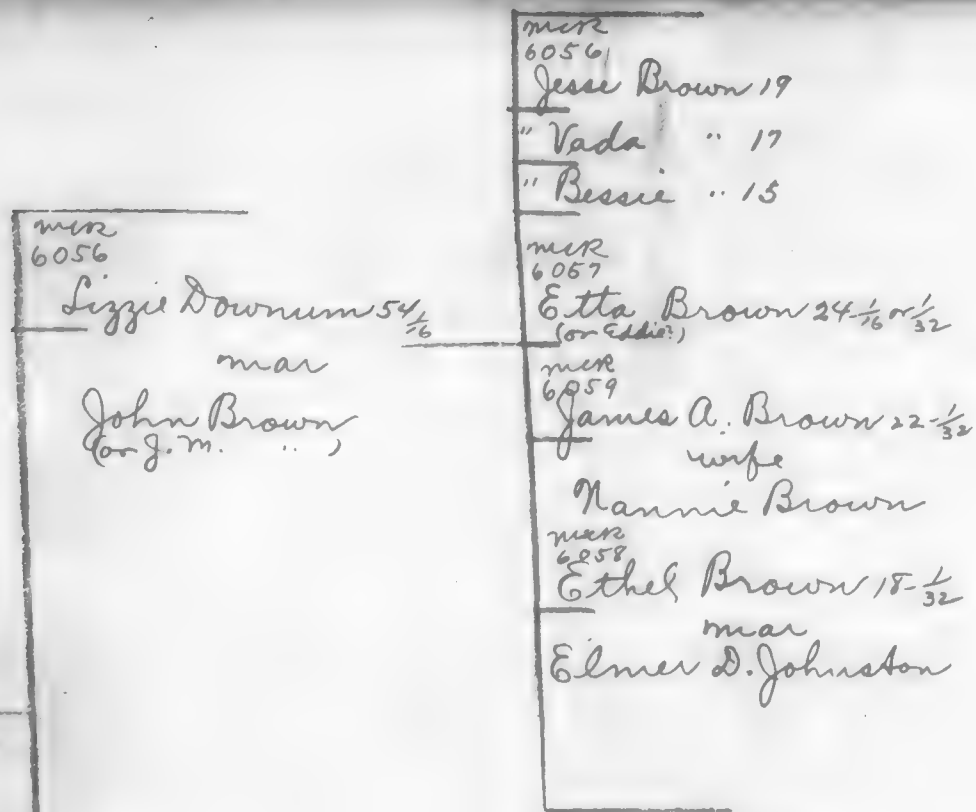 MCR
6056
Lizzie Downum 54 1/16
mar
John Brown
(or J. M. " )
MCR
6056
Jesse Brown 19
" Vada " 17
" Bessie " 15
MCR
6057
Etta Brown 24-1/16 or 1/32
(or Eddie?)
MCR
6059
James A. Brown 22-1/32
wife
Nannie Brown
MCR
6058
Ethel Brown 18-1/32
mar
Elmer D. Johnston